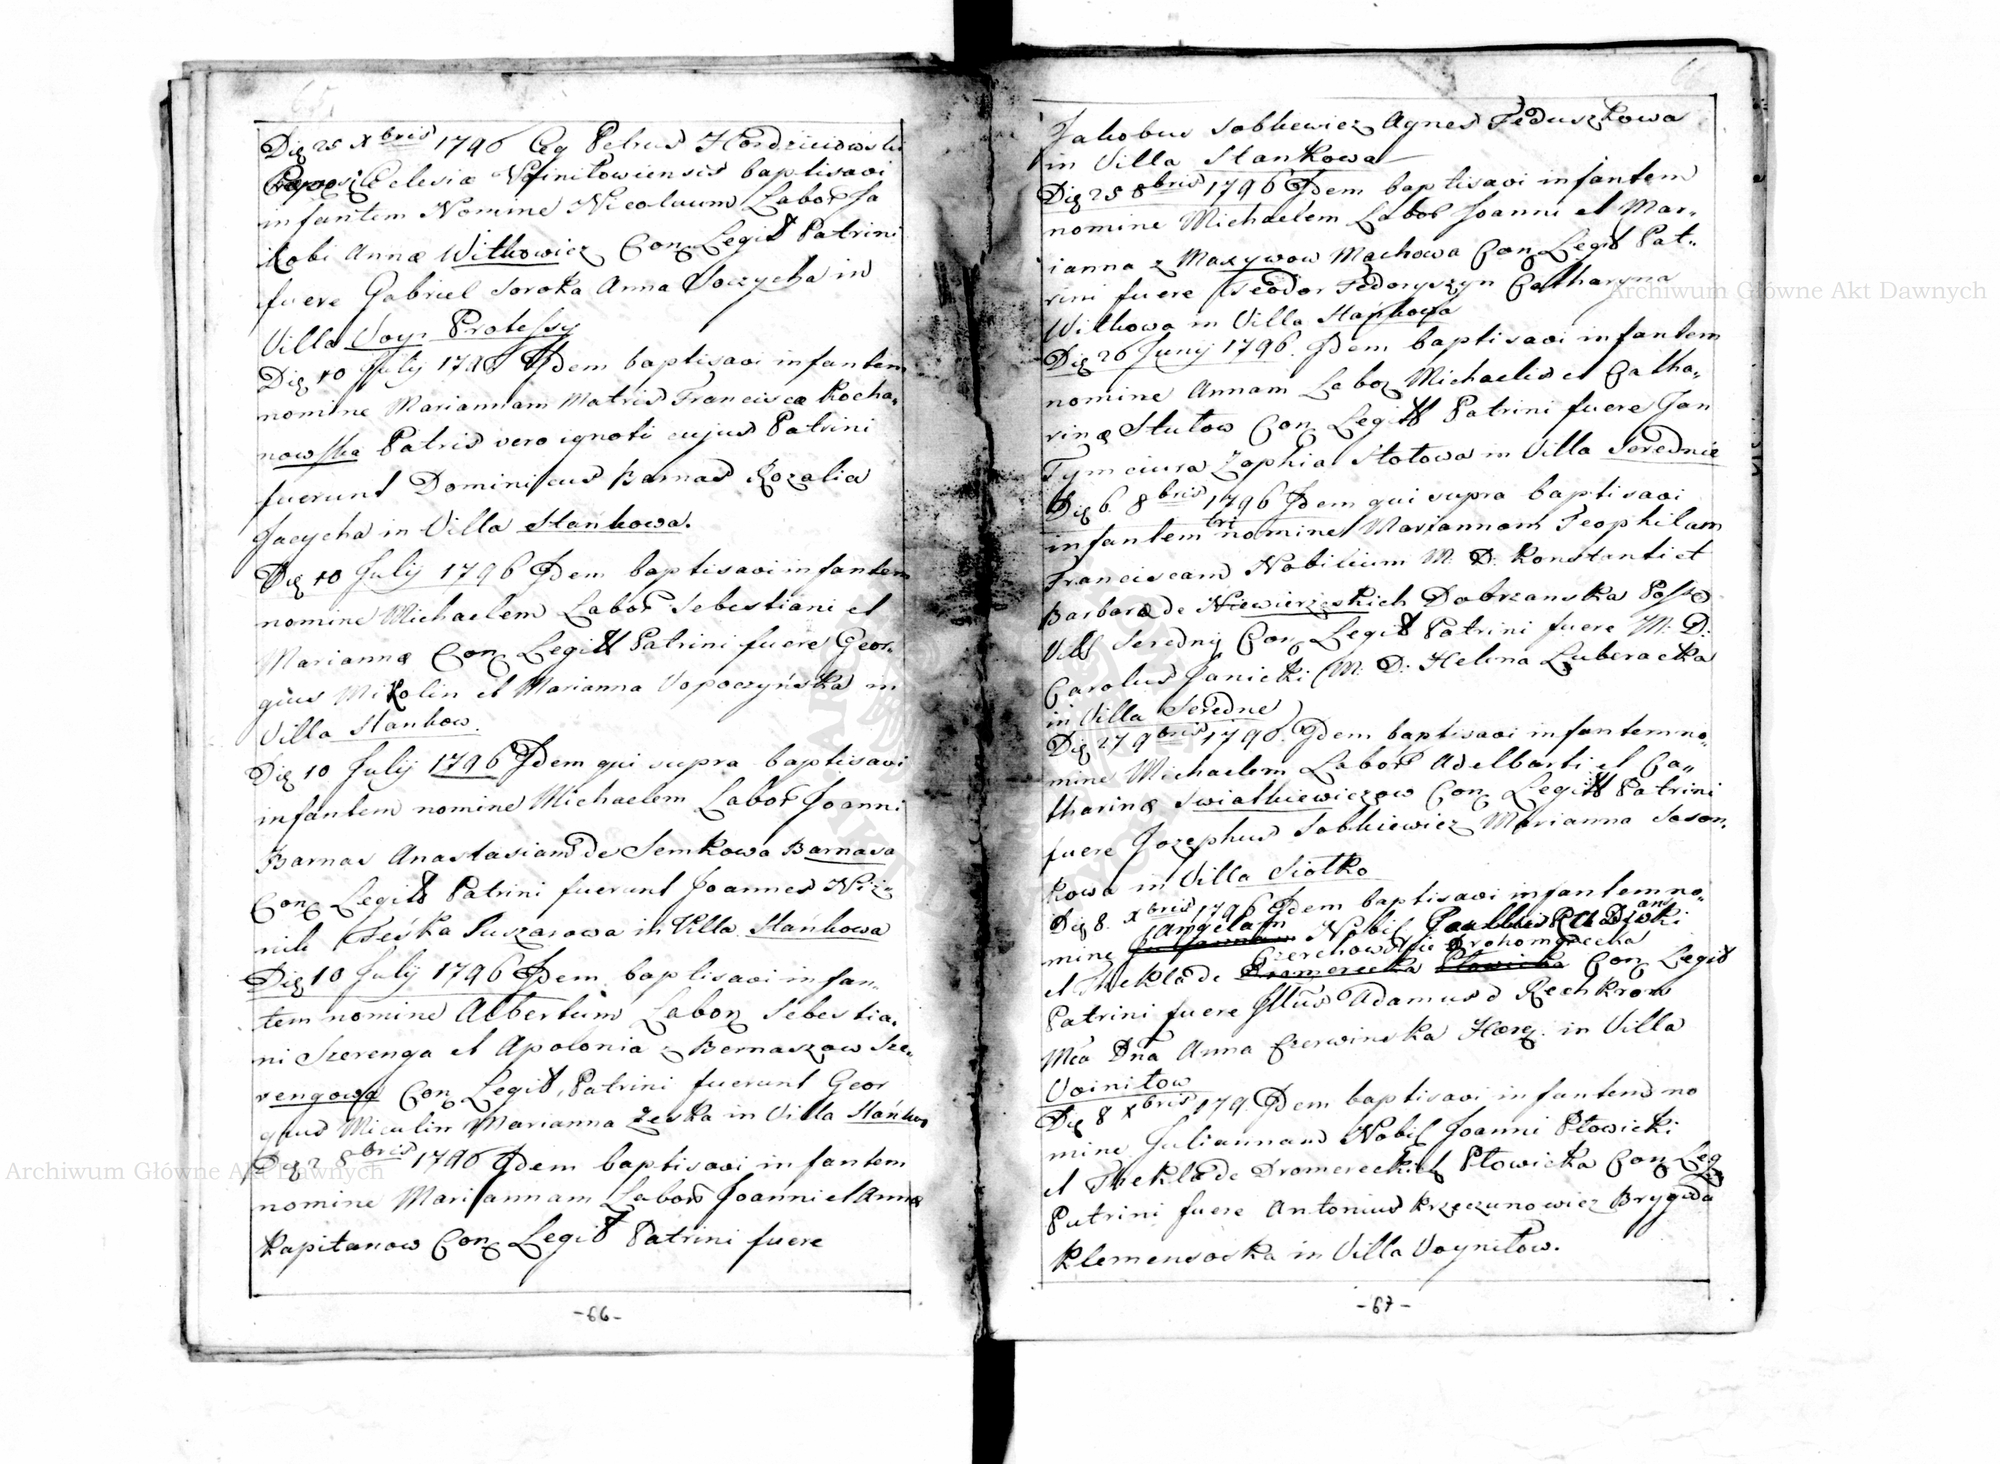 65.
Die 25 Xbris 1796 Eg Petrus Hordziiowski
Ecclesiæ Voiniłowiensis baptisavi
infantem Nomine Nicolaum Labor Ja
kobi Annæ Witkowicz Con Legit Patrini
fuere Gabriel Soroka Anna in
Villa Voy.
Die 10 July 1796 Idem baptisavi infantem
nomine Mariannam Matris Francisca Kocha„
nowska Patris vero ignoti cujus Patrini
fuerunt Dominicus Barnas Rozalia
Jacycha in Villa Stańkowa.
Die 10 July 1796 Idem baptisavi infantem
nomine Michaelem Labor Sebestiani et
Mariannæ Con Legit Patrini fuere Geor„
gius Mikolin et Marianna Vopoczyńska in
Villa Stankow.
Die 10 July 1796 Idem qui supra baptisavi
infantem nomine Michaelem Labor Joanni
Barnas Anastasiam de Semkowa Barnasa
Con Legit Patrini fuerunt Joannes Niz„
nik Teśka Puszarowa in Villa Stańkowa
Die 10 July 1796 Idem baptisavi infan„
tem nomine Albertum Labor Sebestia„
ni Szerenga et Apolonia z Bernaszow Sze„
rengowa Con Legit, Patrini fuerunt Geor
gius Miculin Marianna Zeska in Villa Stańkow
Die 2 8bris 1796 Idem baptisavi infantem
nomine Mariannam Labor Joanni et Annæ
Kapitanow Con Legit Patrini fuere
-66-
Jakobus Sobkiewicz Agnes Feduszkowa
in Villa Stankowa
Die 25 8bris 1796 Idem baptisavi infantem
nomine Michaelem Labor Joanni et Mar„
ianna z Maxymow Machowa Con Legit Pat„
rini fuere Teodor Fedoryszyn Catharyna
Witkowa in Villa Stańkowa
Die 26 Junij 1796. Idem baptisavi infantem
nomine Annam Labor Michaelis et Catha„
rinæ Stutow Con Legit Patrini fuere Jan
Tymciura Zophia Stotowa in Villa Serednie
Die 6. 8bris 1796 Idem qui supra baptisavi
infantem tri nomine Mariannam Teophilam
Franciscam Nobilium M. D. Konstanti et
Barbaræ de Niewierzeskich Dobrzanska Poss
Vill Seredny Con Legit Patrini fuere M. D.
Carolus Janicki M. D. Helena Luberacka
in Villa Seredne
Die 27 9bris 1796. Idem baptisavi infantem no„
mine Michaelem Labor Adelbarti et Ca„
tharinæ Swiatkiewiczow Con Legit Patrini
fuere Jozephus Sobkiewicz Marianna Sason„
kowa in Villa Siolko
Die 8. Xbris 1796 Idem baptisavi infantem no„
mine Angelam Nobil
et Thekla de Con Legit
Patrini fuere Adamus Rechkron
Mca Dna Anna Czerwinska Hæe. in Villa
Voinilow
Die 8 Xbris 179. Idem baptisavi infantem no
mine Juliannam Nobil Joanni Płowicki
et Thekla de Dromereckich Płowicka Con Leg
Patrini fuere Antonius Krzeczunowicz Brygida
Klemensoska in Villa Voyniłow.
-67-
Archiwum Główne Akt Dawnych
Archiwum Główne Akt Dawnych